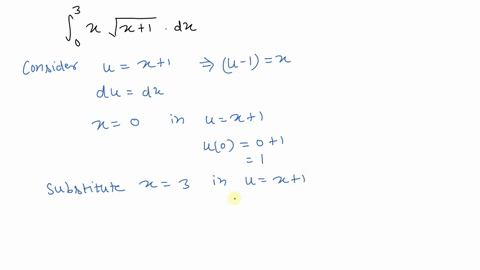 ∫₀³ x √(x+1) · dx
Consider u = x+1 ⇒ (u-1) = x
du = dx
x = 0 in u = x+1
u(0) = 0+1
= 1
Substitute x = 3 in u = x+1